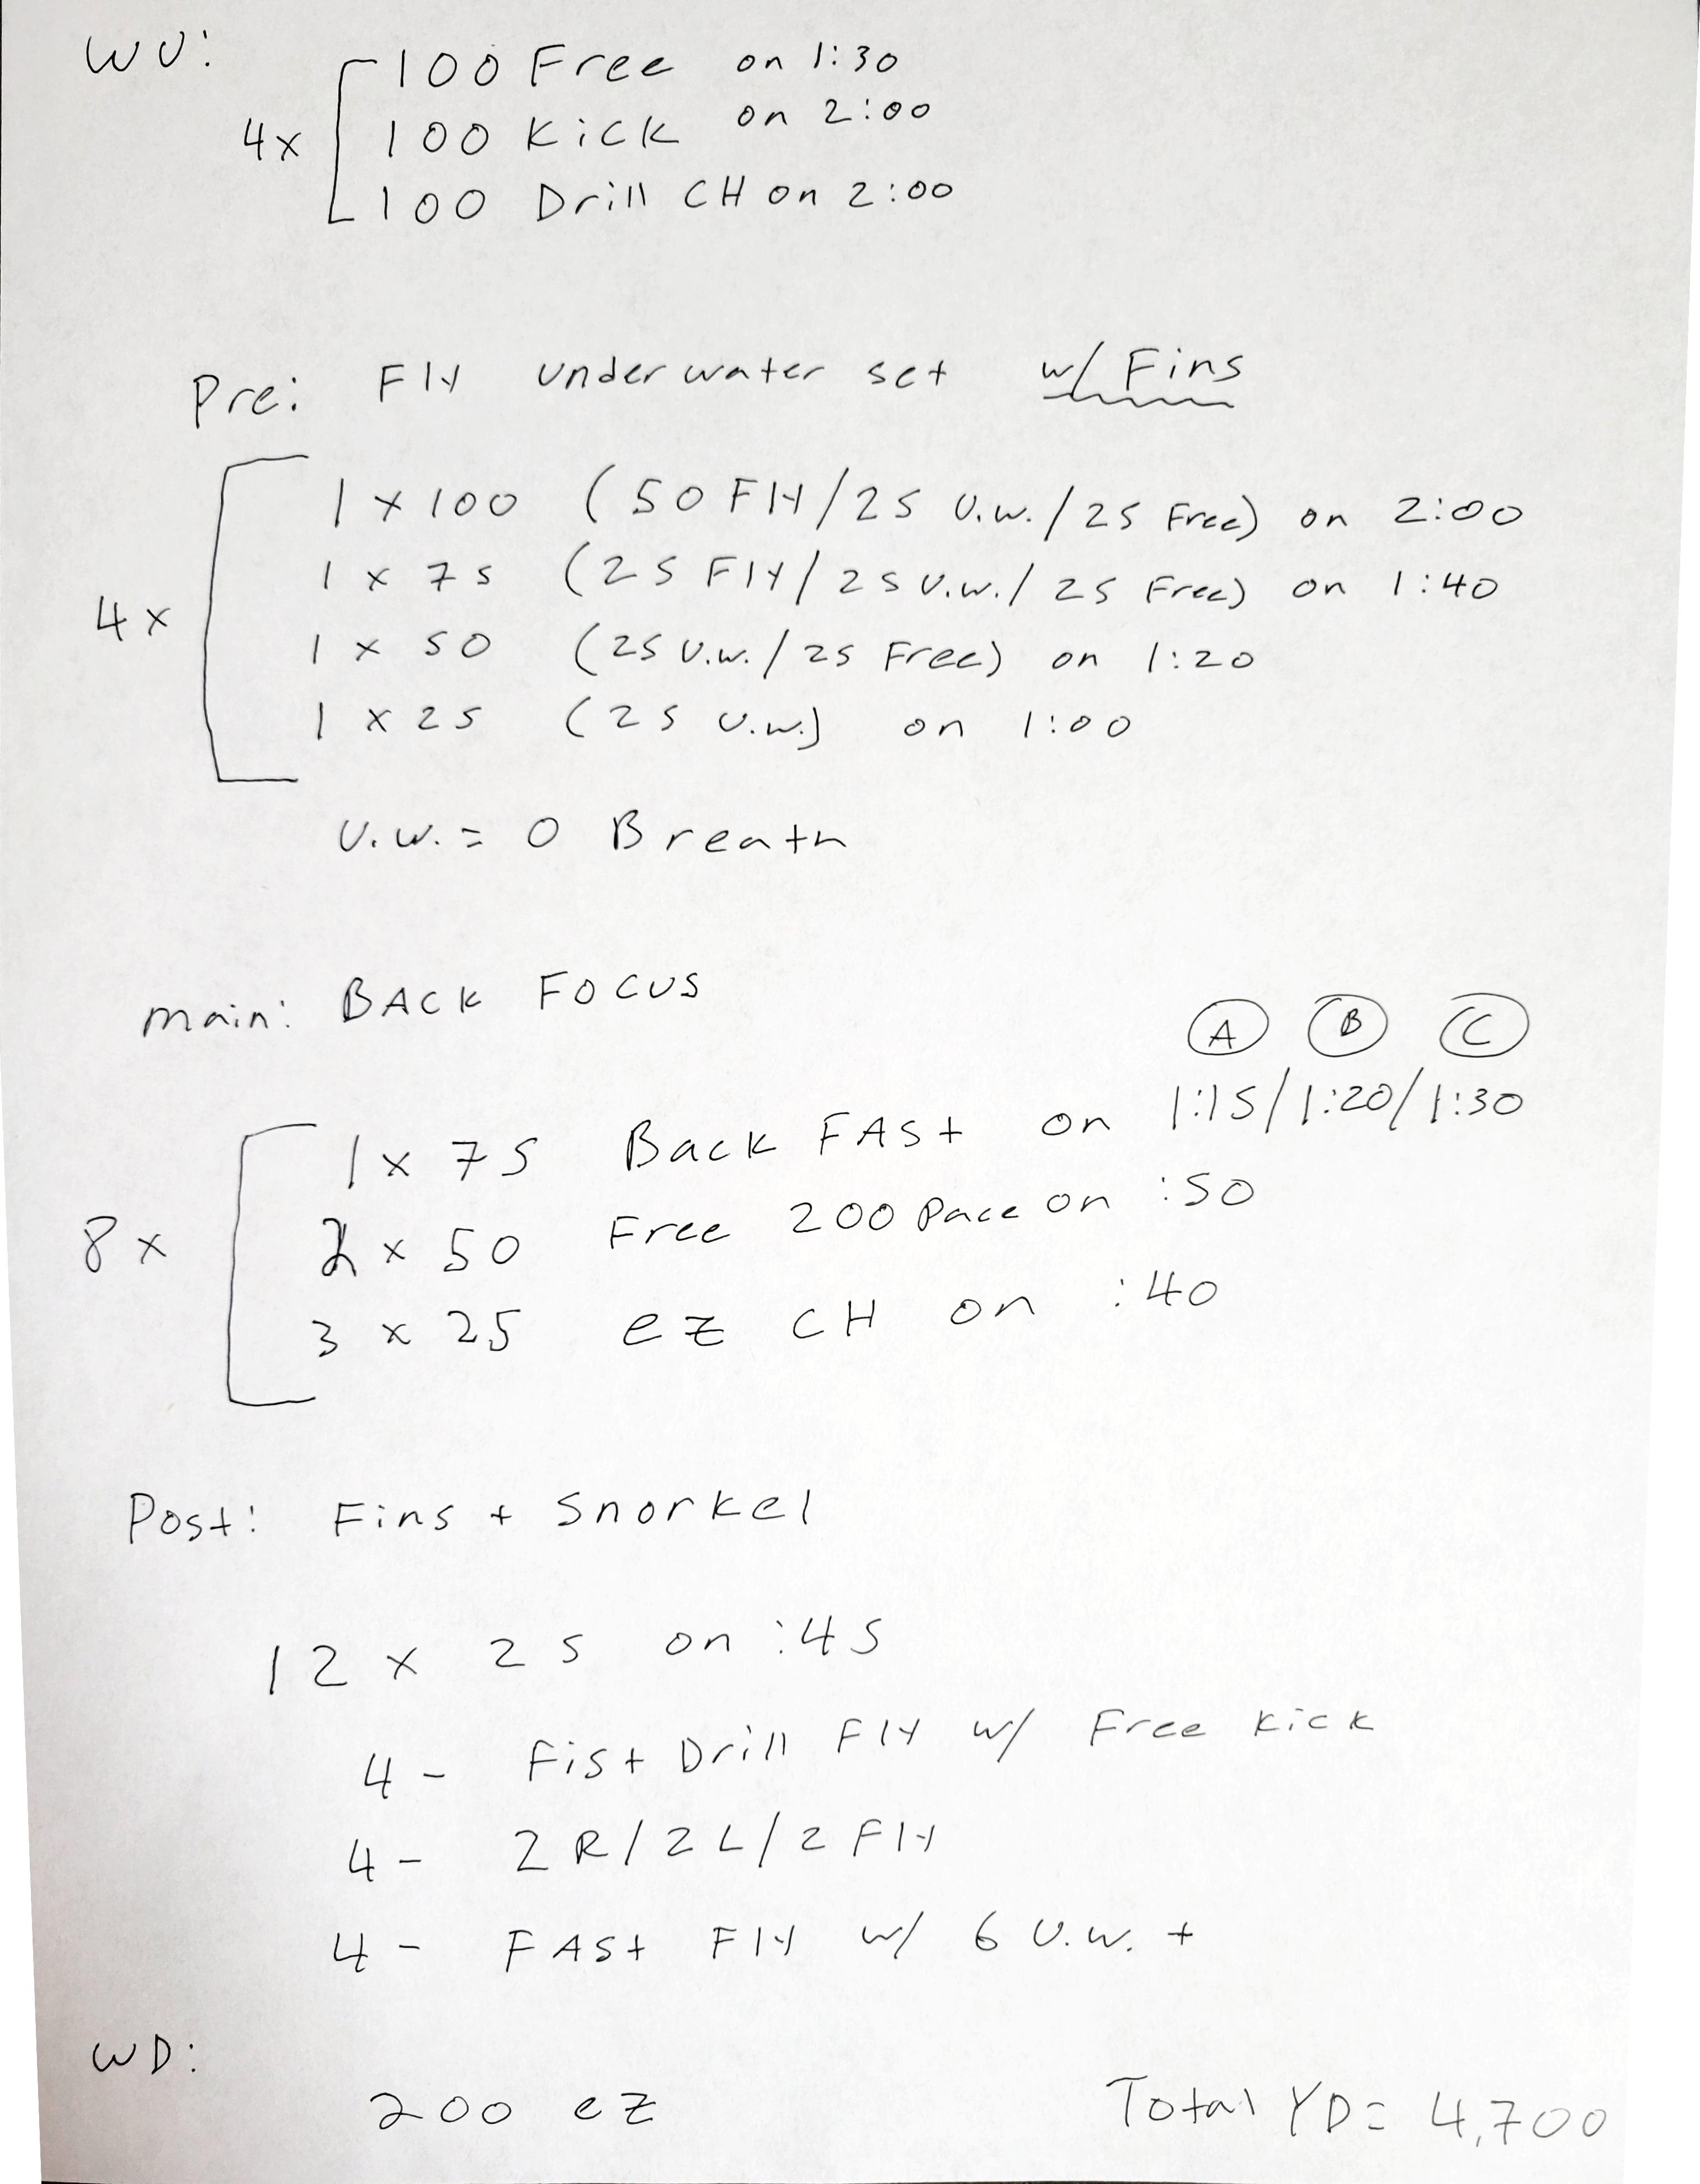 WU:
100 Free on 1:30
4x 100 Kick on 2:00
100 Drill CH on 2:00
Pre: Fly underwater set w/ Fins
1 x 100 (50 Fly/25 U.W./25 Free) on 2:00
1 x 75 (25 Fly/25 U.W./25 Free) on 1:40
4x
1 x 50 (25 U.W./25 Free) on 1:20
1 x 25 (25 U.W.) on 1:00
U.W. = 0 Breath
main: BACK FOCUS
A B C
1 x 75 Back FASt on 1:15/1:20/1:30
8x 2 x 50 Free 200 Pace on :50
3 x 25 ez CH on :40
Post: Fins + Snorkel
12 x 25 on :45
4 - Fist Drill Fly w/ Free Kick
4 - 2R/2L/2Fly
4 - FASt Fly w/ 6 U.W. +
WD:
200 ez
Total YD= 4,700